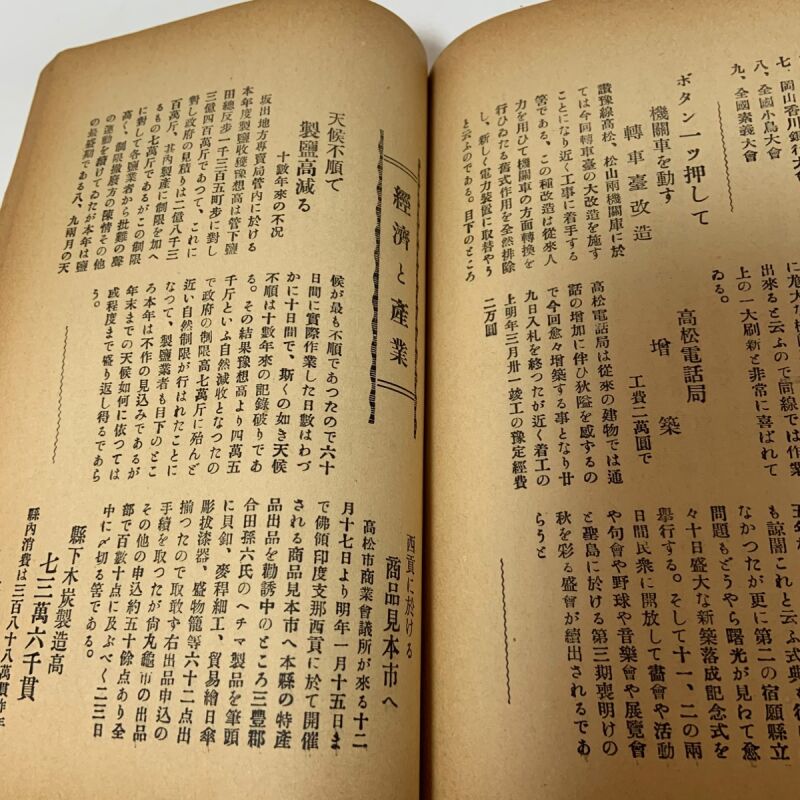 七、岡山香川銀行大會
八、全國小鳥大會
九、全國素義大會
ボタン一ツ押して
機關車を動す
轉車臺改造
讚豫線高松、松山兩機關庫に於
ては今回轉車臺の大改造を施す
ことになり近く工事に着手する
筈である、この種改造は從來人
力を用ひて機關車の方面轉換を
行ひゐたる舊式作用を全然排除
し、新しく電力裝置に取替やう
と云ふのである。目下のところ
出來ると云ふので同線では作業
上の一大刷新と非常に喜ばれて
ゐる。
高松電話局
增築
工費二萬圓で
高松電話局は從來の建物では通
話の增加に伴ひ狹隘を感ずるの
で今回愈々增築する事となり廿
九日入札を終つたが近く着工の
上明年三月卅一竣工の豫定經費
二万圓
も諒闇これと云ふ式典も行は
なかつたが更に第二の宿願縣立
問題もどうやら曙光が見ねて愈
々十日盛大な新築落成記念式を
擧行する。そして十一、二の兩
日間民衆に開放して書會や活動
や句會や野球や音樂會や展覽會
と聖島に於ける第三期喪明けの
秋を彩る盛會が續出されるであ
らうと
經濟と產業
天候不順で
製鹽高減る
十數年來の不況
坂出地方專賣局管內に於ける
本年度製鹽收獲豫想高は管下鹽
田總反步一千三百五町步に對し
三億四百萬斤であつて、これに
對し政府の見積りは二億八千三
百萬斤、其內製產に制限を加へ
るもの七萬斤であるがこの制限
に對して各鹽業者から批難の聲
高く、制限撤廢方の陳情その他
の運動を續けてゐたが本年は鹽
の最盛期である八、九兩月の天
候が最も不順であつたので六十
日間に實際作業した日數はわづ
かに十日間で、斯くの如き天候
不順は十數年來の記錄破りであ
る。その結果豫想高より四萬五
千斤といふ自然減收となつたの
で政府の制限高七萬斤に殆んど
近い自然制限が行はれたことに
なつて、製鹽業者も目下のとこ
ろ本年は不作の見込みであるが
年末までの天候如何に依つては
或程度まで盛り返し得るであら
う。
西貢に於ける
商品見本市へ
高松市商業會議所が來る十二
月十七日より明年一月十五日ま
で佛領印度支那西貢に於て開催
される商品見本市へ本縣の特產
品出品を勸誘中のところ三豐郡
合田孫六氏のヘチマ製品を筆頭
に貝釦、麥稈細工、貿易繪日傘
彫拔漆器、盛物籠等六十二點出
揃つたので取敢ず右出品申込の
手續を取つたが尙丸龜市の出品
その他の申込約五十餘點あり全
部で百數十點に及ぶべく二三日
中に〆切る筈である。
縣下木炭製造高
七三萬六千貫
縣內消費は三百八十八萬貫